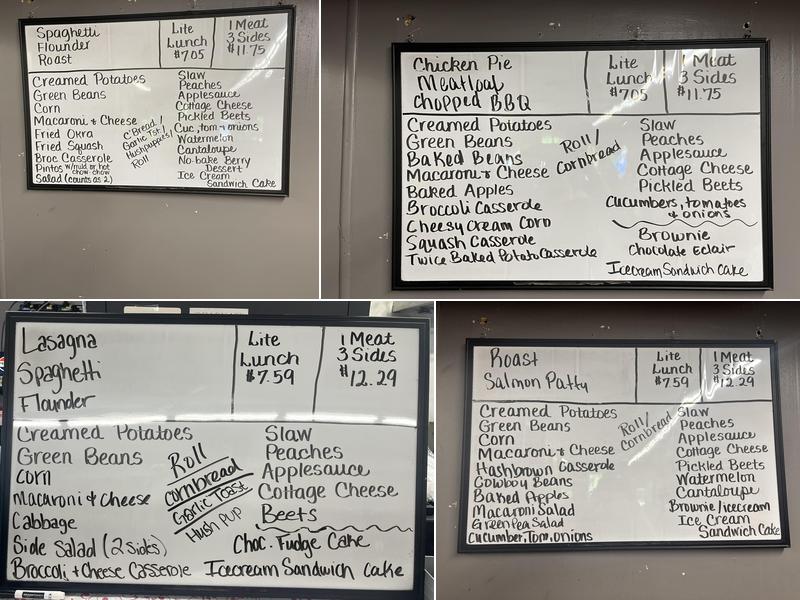 Spaghetti
Flounder
Roast
Lite
Lunch
$7.05
1 Meat
3 Sides
$11.75
Creamed Potatoes
Green Beans
Corn
Macaroni & Cheese
Fried Okra
Fried Squash
Broc Casserole
Pintos w/mild or hot
chow-chow
Salad (counts as 2)
C'Bread/
Garlic Tst/
Hushpuppies/
Roll
Slaw
Peaches
Applesauce
Cottage Cheese
Pickled Beets
Cuc, tom & onions
Watermelon
Cantaloupe
No-bake Berry
Dessert
Ice Cream
Sandwich Cake
Chicken Pie
Meatloaf
Chopped BBQ
Lite
Lunch
$7.05
1 Meat
3 Sides
$11.75
Creamed Potatoes
Green Beans
Baked Beans
Macaroni & Cheese
Baked Apples
Broccoli Casserole
Cheesy Cream Corn
Squash Casserole
Twice Baked Potato Casserole
Roll/
Cornbread
Slaw
Peaches
Applesauce
Cottage Cheese
Pickled Beets
Cucumbers, tomatoes
& onions
Brownie
Chocolate Eclair
Icecream Sandwich Cake
Lasagna
Spaghetti
Flounder
Lite
Lunch
$7.59
1 Meat
3 Sides
$12.29
Creamed Potatoes
Green Beans
Corn
Macaroni & Cheese
Cabbage
Side Salad (2 sides)
Broccoli & Cheese Casserole
Roll
Cornbread
Garlic Toast
Hush Pup
Slaw
Peaches
Applesauce
Cottage Cheese
Beets
Choc. Fudge Cake
Icecream Sandwich Cake
Roast
Salmon Patty
Lite
Lunch
$7.59
1 Meat
3 Sides
$12.29
Creamed Potatoes
Green Beans
Corn
Macaroni & Cheese
Hashbrown Casserole
Cowboy Beans
Baked Apples
Macaroni Salad
Green Pea Salad
Cucumber, Tom, onions
Roll/
Cornbread
Slaw
Peaches
Applesauce
Cottage Cheese
Pickled Beets
Watermelon
Cantaloupe
Brownie/icecream
Ice Cream
Sandwich Cake